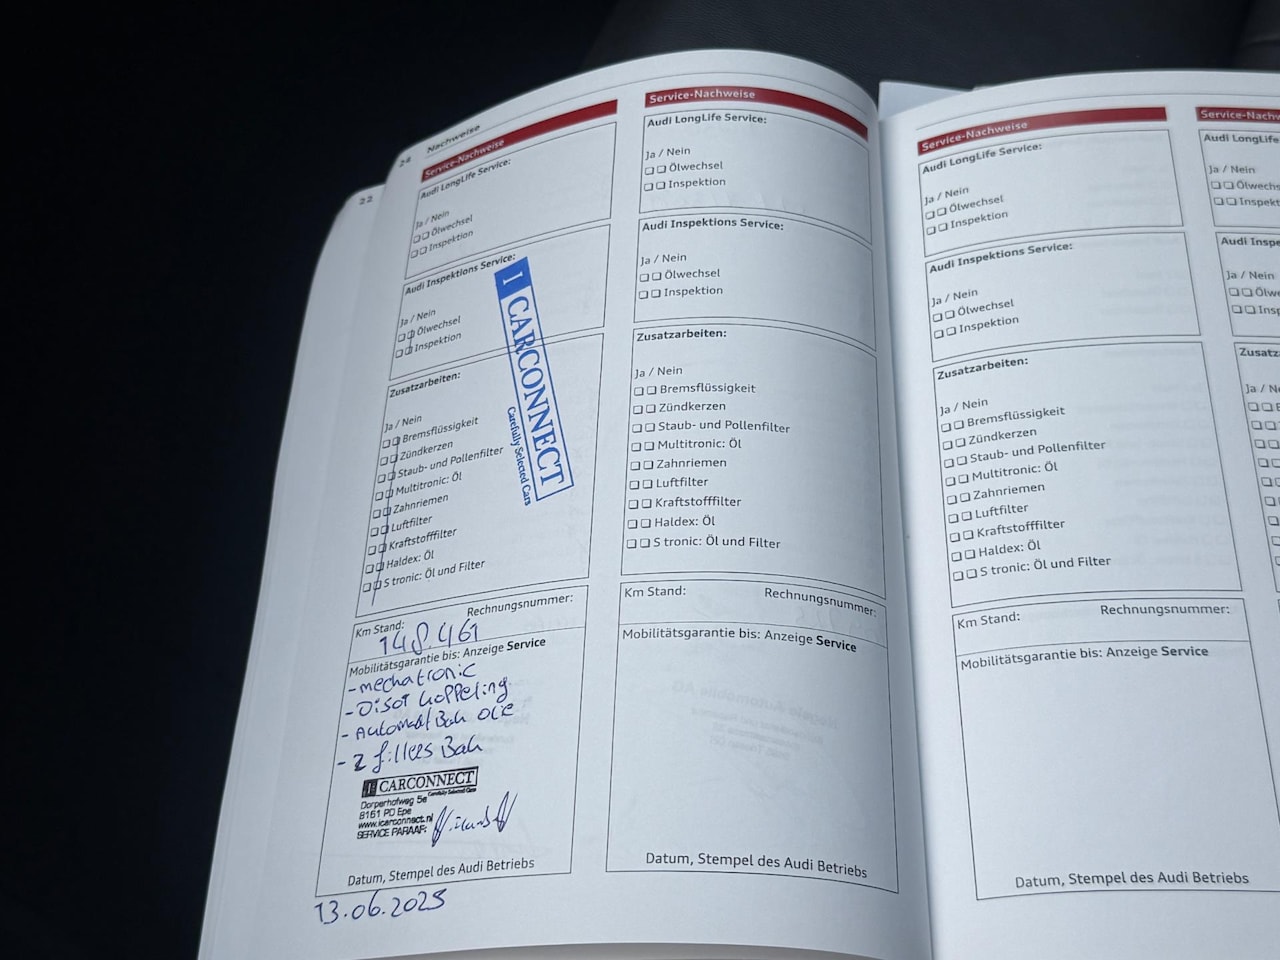 22
24
Nachweise
Service-Nachweise
Audi LongLife Service:
Ja / Nein
Ölwechsel
Inspektion
Audi Inspektions Service:
Ja / Nein
Ölwechsel
Inspektion
I CARCONNECT
Carefully Selected Cars
Zusatzarbeiten:
Ja / Nein
Bremsflüssigkeit
Zündkerzen
Staub- und Pollenfilter
Multitronic: Öl
Zahnriemen
Luftfilter
Kraftstofffilter
Haldex: Öl
S tronic: Öl und Filter
Km Stand: Rechnungsnummer:
148.461
Mobilitätsgarantie bis: Anzeige Service
- mechatronic
- Disot koppeling
- Automaat Bak olie
- 2 filters Bak
I CARCONNECT
Carefully Selected Cars
Dorperhofweg 5e
8161 PD Epe
www.icarconnect.nl
SERVICE PARAAF:
Datum, Stempel des Audi Betriebs
13.06.2025
Service-Nachweise
Audi LongLife Service:
Ja / Nein
Ölwechsel
Inspektion
Audi Inspektions Service:
Ja / Nein
Ölwechsel
Inspektion
Zusatzarbeiten:
Ja / Nein
Bremsflüssigkeit
Zündkerzen
Staub- und Pollenfilter
Multitronic: Öl
Zahnriemen
Luftfilter
Kraftstofffilter
Haldex: Öl
S tronic: Öl und Filter
Km Stand: Rechnungsnummer:
Mobilitätsgarantie bis: Anzeige Service
Datum, Stempel des Audi Betriebs
Service-Nachweise
Audi LongLife Service:
Ja / Nein
Ölwechsel
Inspektion
Audi Inspektions Service:
Ja / Nein
Ölwechsel
Inspektion
Zusatzarbeiten:
Ja / Nein
Bremsflüssigkeit
Zündkerzen
Staub- und Pollenfilter
Multitronic: Öl
Zahnriemen
Luftfilter
Kraftstofffilter
Haldex: Öl
S tronic: Öl und Filter
Km Stand: Rechnungsnummer:
Mobilitätsgarantie bis: Anzeige Service
Datum, Stempel des Audi Betriebs
Service-Nachw
Audi LongLife
Ja / Nein
Ölwechs
Inspekt
Audi Inspe
Ja / Nein
Ölwe
Insp
Zusatz
Ja / N